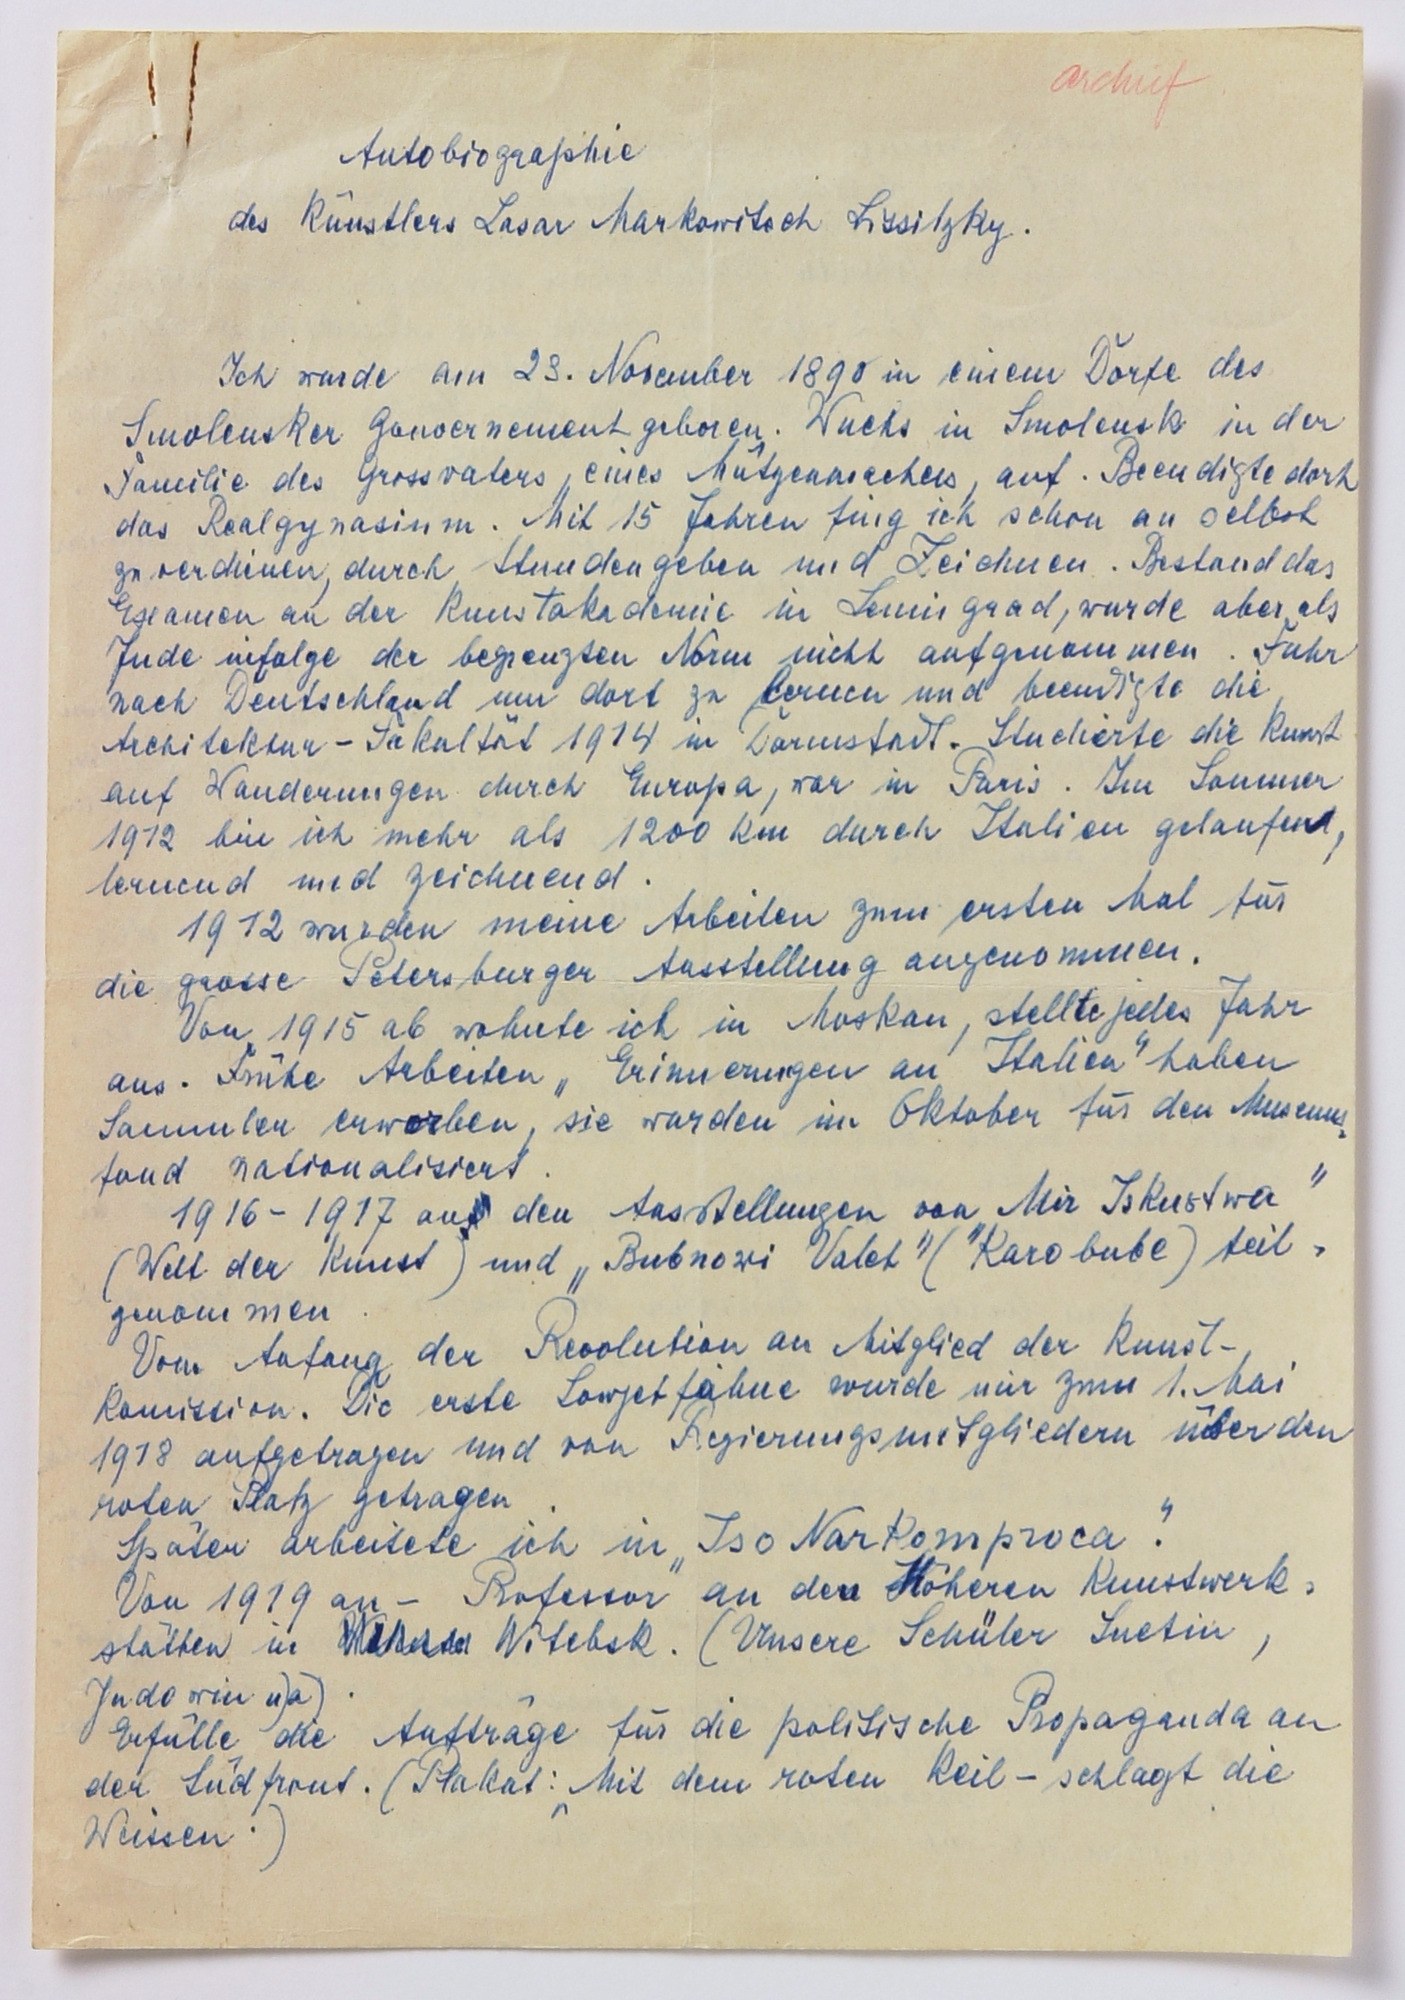 archief
Autobiographie
des Künstlers Lasar Markowitsch Lissitzky.
Ich wurde am 23. November 1890 in einem Dorfe des
Smolensker Gouvernement geboren. Wuchs in Smolensk in der
Familie des Grossvaters, eines Mützenmachers, auf. Beendigte dort
das Realgynasium. Mit 15 Jahren fing ich schon an selbst
zu verdienen, durch Stundengeben und Zeichnen. Bestand das
Examen an der Kunstakademie in Leningrad, wurde aber als
Jude infolge der begrenzten Norm nicht aufgenommen. Fuhr
nach Deutschland um dort zu lernen und beendigte die
Architektur-Fakultät 1914 in Darmstadt. Studierte die Kunst
auf Wanderungen durch Europa, war in Paris. Im Sommer
1912 bin ich mehr als 1200 km durch Italien gelaufen,
lernend und zeichnend.
1912 wurden meine Arbeiten zum ersten Mal für
die grosse Petersburger Ausstellung angenommen.
Von 1915 ab wohnte ich in Moskau, stellte jedes Jahr
aus. Frühe Arbeiten „Erinnerungen an Italien" haben
Sammler erworben, sie wurden im Oktober für den Museums-
fond nationalisiert.
1916-1917 an den Ausstellungen von Mir Iskustwa"
(Welt der Kunst) und „Bubnowi Valet" ("Karobube) teil-
genommen.
Vom Anfang der Revolution an Mitglied der Kunst-
Komission. Die erste Sowjetfahne wurde mir zum 1. Mai
1918 aufgetragen und von Regierungsmitgliedern über den
roten Platz getragen.
Später arbeitete ich in „Iso Narkomproca".
Von 1919 an - Professor an den Höheren Kunstwerk-
stätten in Witebsk. (Unsere Schüler Suetin,
Judowin u.a).
Erfülle die Aufträge für die politische Propaganda an
der Südfront. (Plakat: Mit dem roten Keil - schlagt die
Weissen.)